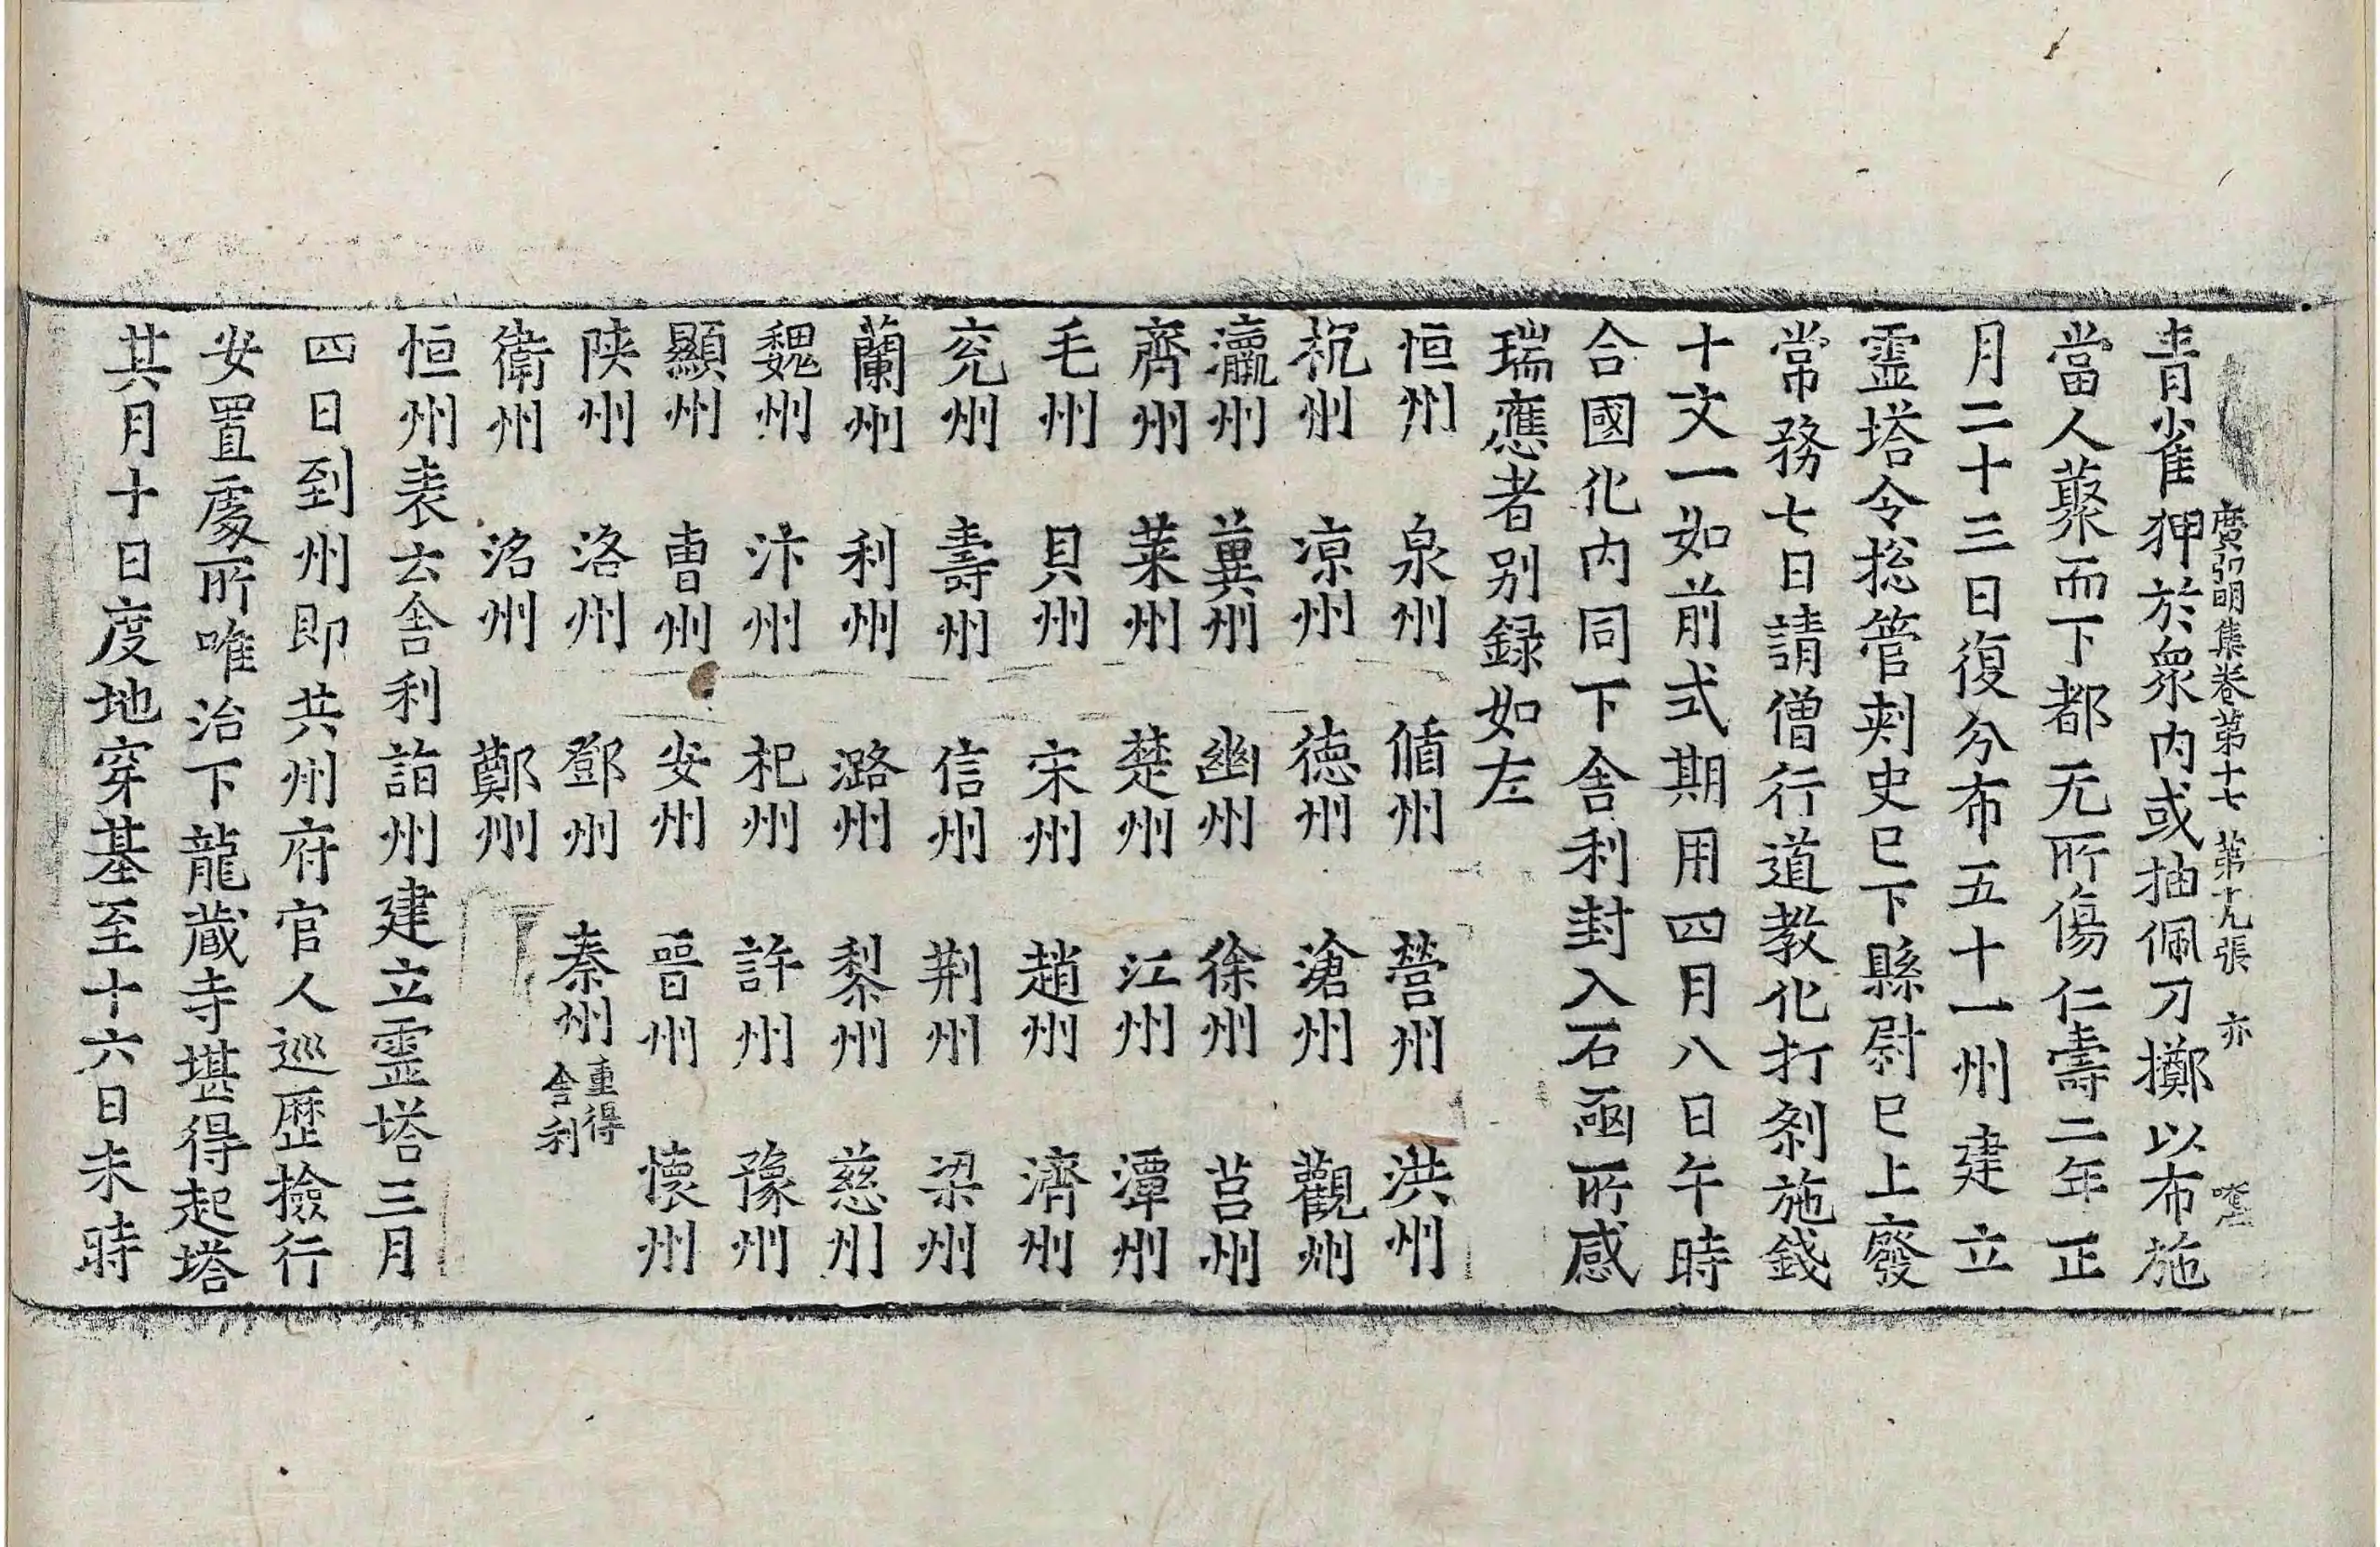 廣弘明集卷第十七 第十九張 亦
青雀狎於衆内或抽佩刀擲以布施
當人藂而下都无所傷仁壽二年正
月二十三日復分布五十一州建立
靈塔令捴管刺史已下縣尉已上廢
常務七日請僧行道教化打剎施錢
十文一如前式期用四月八日午時
合國化内同下舍利封入石函所感
瑞應者别録如左
恒州 泉州 循州 營州 洪州
杭州 凉州 德州 滄州 觀州
瀛州 冀州 幽州 徐州 莒州
齊州 萊州 楚州 江州 潭州
毛州 貝州 宋州 趙州 濟州
兖州 壽州 信州 荆州 梁州
蘭州 利州 潞州 黎州 慈州
魏州 汴州 杞州 許州 豫州
顯州 曹州 安州 晉州 懷州
陝州 洛州 鄧州 秦州 重得舍利
衛州 洺州 鄭州
恒州表云舍利詣州建立靈塔三月
四日到州即共州府官人巡歷撿行
安置處所唯治下龍藏寺堪得起塔
其月十日度地穿基至十六日未時